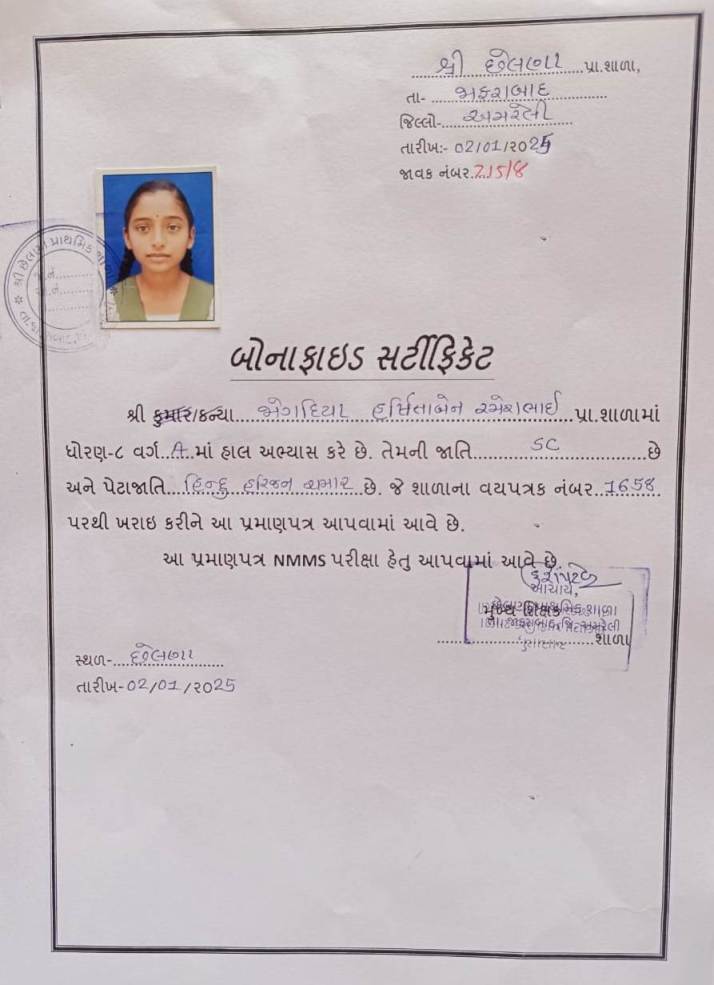 શ્રી છેલણા પ્રા.શાળા,
તા- જાફરાબાદ
જિલ્લો- અમરેલી
તારીખ:- 02/01/2025
જાવક નંબર.215/8
બોનાફાઇડ સર્ટીફિકેટ
શ્રી કુમાર/કન્યા હર્ષિતાબેન રમેશભાઈ પ્રા.શાળામાં
ધોરણ-૮ વર્ગ A માં હાલ અભ્યાસ કરે છે. તેમની જાતિ SC છે
અને પેટાજાતિ હિન્દુ હરિજન ચમાર છે. જે શાળાના વયપત્રક નંબર 1658
પરથી ખરાઇ કરીને આ પ્રમાણપત્ર આપવામાં આવે છે.
આ પ્રમાણપત્ર NMMS પરીક્ષા હેતુ આપવામાં આવે છે.
આચાર્ય,
મુખ્ય શિક્ષક
શાળા
સ્થળ- છેલણા
તારીખ-02/01/2025